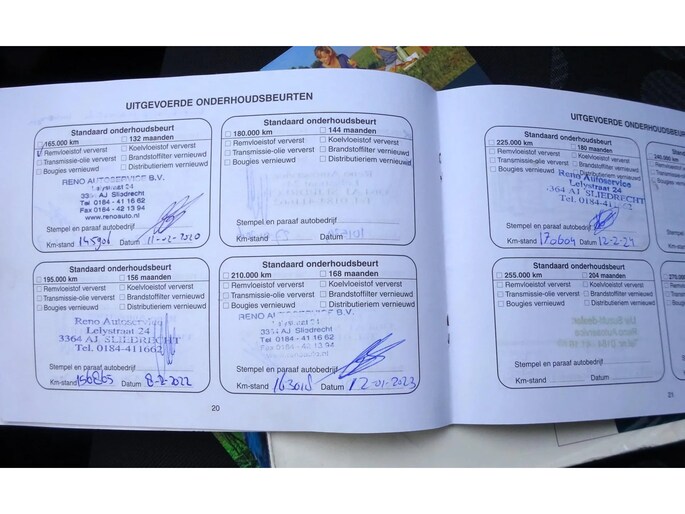 UITGEVOERDE ONDERHOUDSBEURTEN
Standaard onderhoudsbeurt
165.000 km 132 maanden
Remvloeistof ververst Koelvloeistof ververst
Transmissie-olie ververst Brandstoffilter vernieuwd
Bougies vernieuwd Distributieriem vernieuwd
RENO AUTOSERVICE B.V.
Lelystraat 24
3364 AJ Sliedrecht
Tel 0184 - 41 16 62
Fax 0184 - 42 13 94
www.renoauto.nl
Stempel en paraaf autobedrijf
Km-stand 145906 Datum 11-02-2020
Standaard onderhoudsbeurt
180.000 km 144 maanden
Remvloeistof ververst Koelvloeistof ververst
Transmissie-olie ververst Brandstoffilter vernieuwd
Bougies vernieuwd Distributieriem vernieuwd
Stempel en paraaf autobedrijf
Km-stand Datum
Standaard onderhoudsbeurt
195.000 km 156 maanden
Remvloeistof ververst Koelvloeistof ververst
Transmissie-olie ververst Brandstoffilter vernieuwd
Bougies vernieuwd Distributieriem vernieuwd
Reno Autoservice
Lelystraat 24
3364 AJ SLIEDRECHT
Tel. 0184-411662
Stempel en paraaf autobedrijf
Km-stand 156865 Datum 8-2-2022
Standaard onderhoudsbeurt
210.000 km 168 maanden
Remvloeistof ververst Koelvloeistof ververst
Transmissie-olie ververst Brandstoffilter vernieuwd
Bougies vernieuwd Distributieriem vernieuwd
RENO AUTOSERVICE B.V.
Lelystraat 24
3364 AJ Sliedrecht
Tel 0184 - 41 16 62
Fax 0184 - 42 13 94
www.renoauto.nl
Stempel en paraaf autobedrijf
Km-stand Datum 12-01-2023
20
UITGEVOERDE ONDERHOUDSBEUR
Standaard onderhoudsbeurt
225.000 km 180 maanden
Remvloeistof ververst Koelvloeistof ververst
Transmissie-olie ververst Brandstoffilter vernieuwd
Bougies vernieuwd Distributieriem vernieuwd
Reno Autoservice
Lelystraat 24
3364 AJ SLIEDRECHT
Tel. 0184-41
Stempel en paraaf autobedrijf
Km-stand 170604 Datum 12-2-24
240.000 km
Remvloe
Transm
Bougie
Stempe
Km-sta
Standaard onderhoudsbeurt
255.000 km 204 maanden
Remvloeistof ververst Koelvloeistof ververst
Transmissie-olie ververst Brandstoffilter vernieuwd
Bougies vernieuwd Distributieriem vernieuwd
Stempel en paraaf autobedrijf
Km-stand Datum
270
Rem
Tran
Boug
Stem
Km-s
21